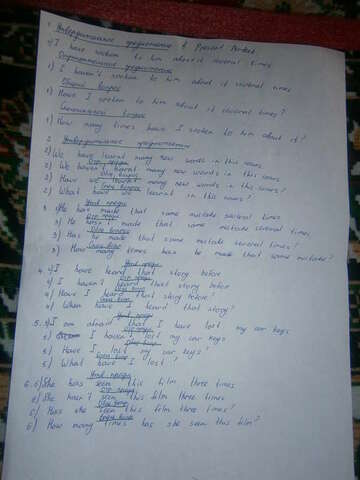 1. Утвердительное предложение в Present Perfect
1) I have spoken to him about it several times
Отрицательное предложение
1) I haven't spoken to him about it several times
Общий вопрос
1) Have I spoken to him about it several times?
Специальный вопрос
1) How many times have I spoken to him about it?
2. Утвердительное предложение
2) We have learnt many new words in this
Отр предл
2) We haven't learnt many new words in this
Общ вопрос
2) Have we learnt many new words in this
Спец вопрос
2) What have we learnt in this
Утв предл
3. 3) He has made that same mistake several times
Отр предл
3) He hasn't made that same mistake several times
Общ вопрос
3) Has he made that same mistake several times?
Спец вопр
3) How many times has he made that same mistake?
Утв предл
4. 4) I have heard that story before
Отр предл
4) I haven't heard that story before
Общ вопр
4) Have I heard that story before?
Спец вопр
4) When have I heard that story?
Утв предл
5. 5) I am afraid that I have lost my car keys
Отр предл
5) I haven't lost my car keys
Общ вопр
5) Have I lost my car keys?
Спец вопр
5) What have I lost?
Утв предл
6. 6) She has seen this film three times
Отр предл
6) She hasn't seen this film three times
Общ вопр
6) Has she seen this film three times?
Спец вопр
6) How many times has she seen this film?